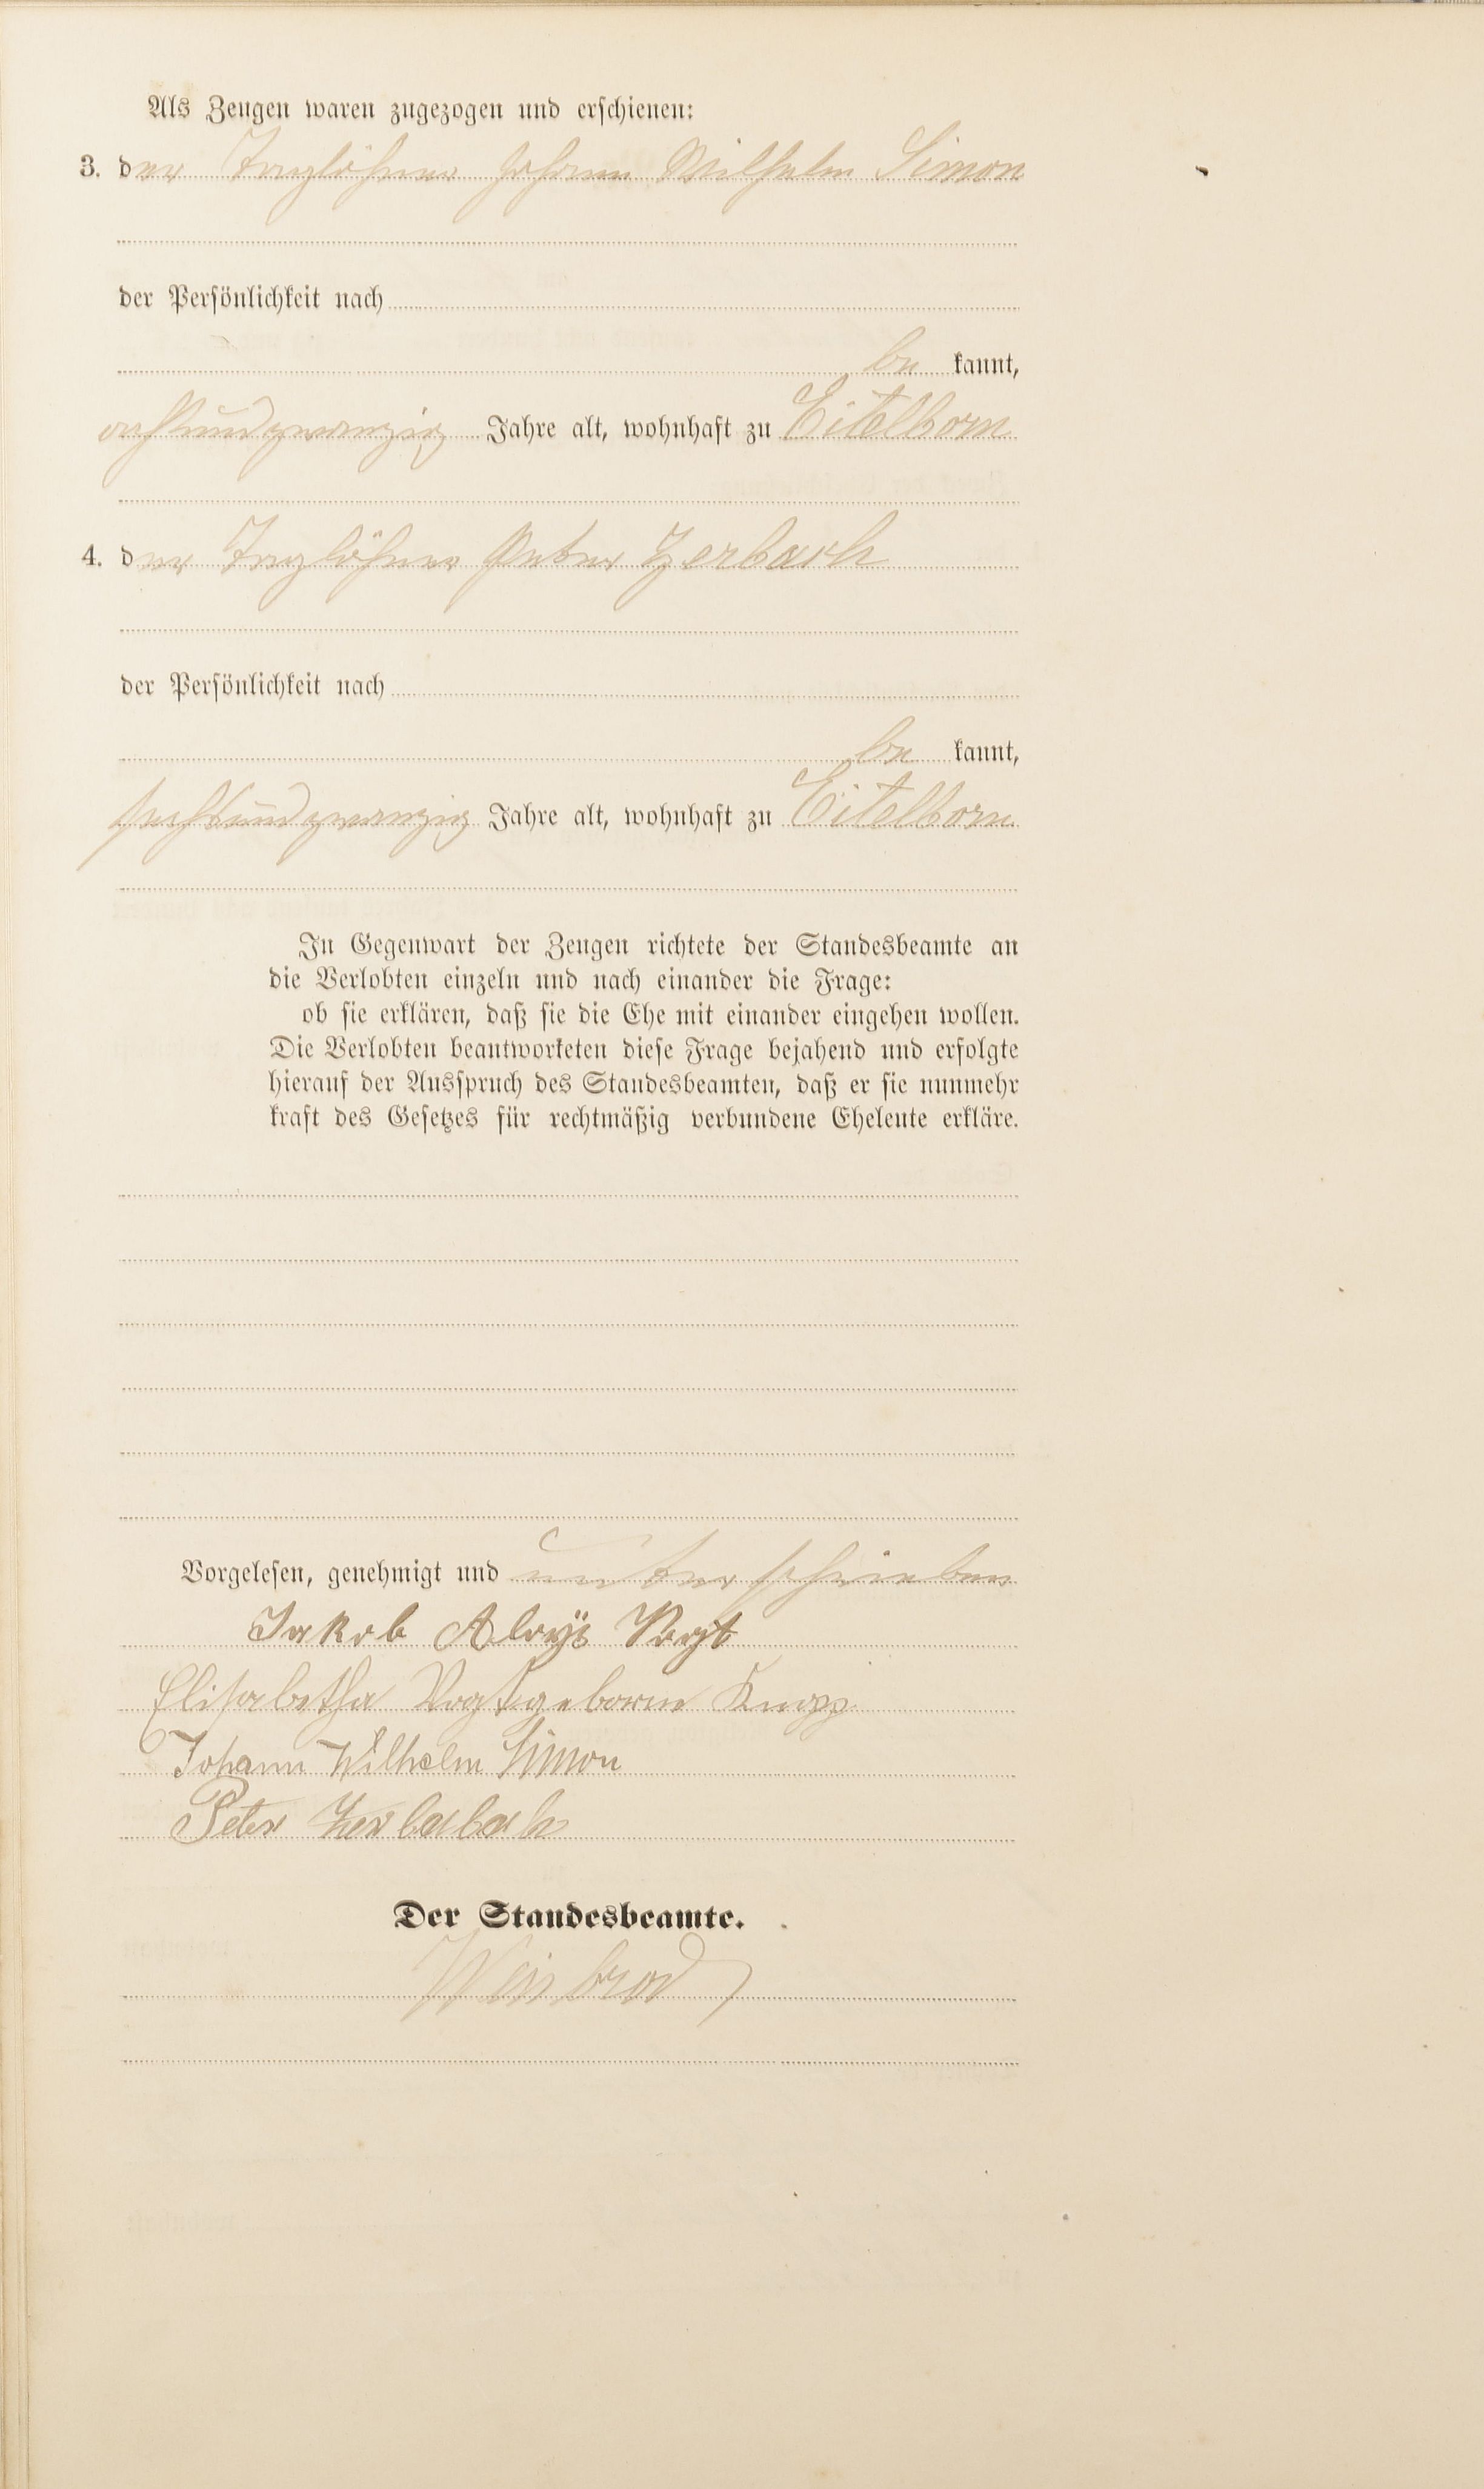 Als Zeugen waren zugezogen und erschienen:
3. der Taglöhner Johann Wilhelm Simon
der Persönlichkeit nach
be kannt,
achtundzwanzig Jahre alt, wohnhaft zu Eitelborn
4. der Taglöhner Peter Zerbach
der Persönlichkeit nach
be kannt,
sechsundzwanzig Jahre alt, wohnhaft zu Eitelborn
In Gegenwart der Zeugen richtete der Standesbeamte an
die Verlobten einzeln und nach einander die Frage:
ob sie erklären, daß sie die Ehe mit einander eingehen wollen.
Die Verlobten beantworteten diese Frage bejahend und erfolgte
hierauf der Ausspruch des Standesbeamten, daß er sie nunmehr
kraft des Gesetzes für rechtmäßig verbundene Eheleute erkläre.
Vorgelesen, genehmigt und unterschrieben
Jakob Aloys Vogt
Elisabetha Vogt geborne Knopp
Johann Wilhelm Simon
Peter
Der Standesbeamte.
Weisbrod